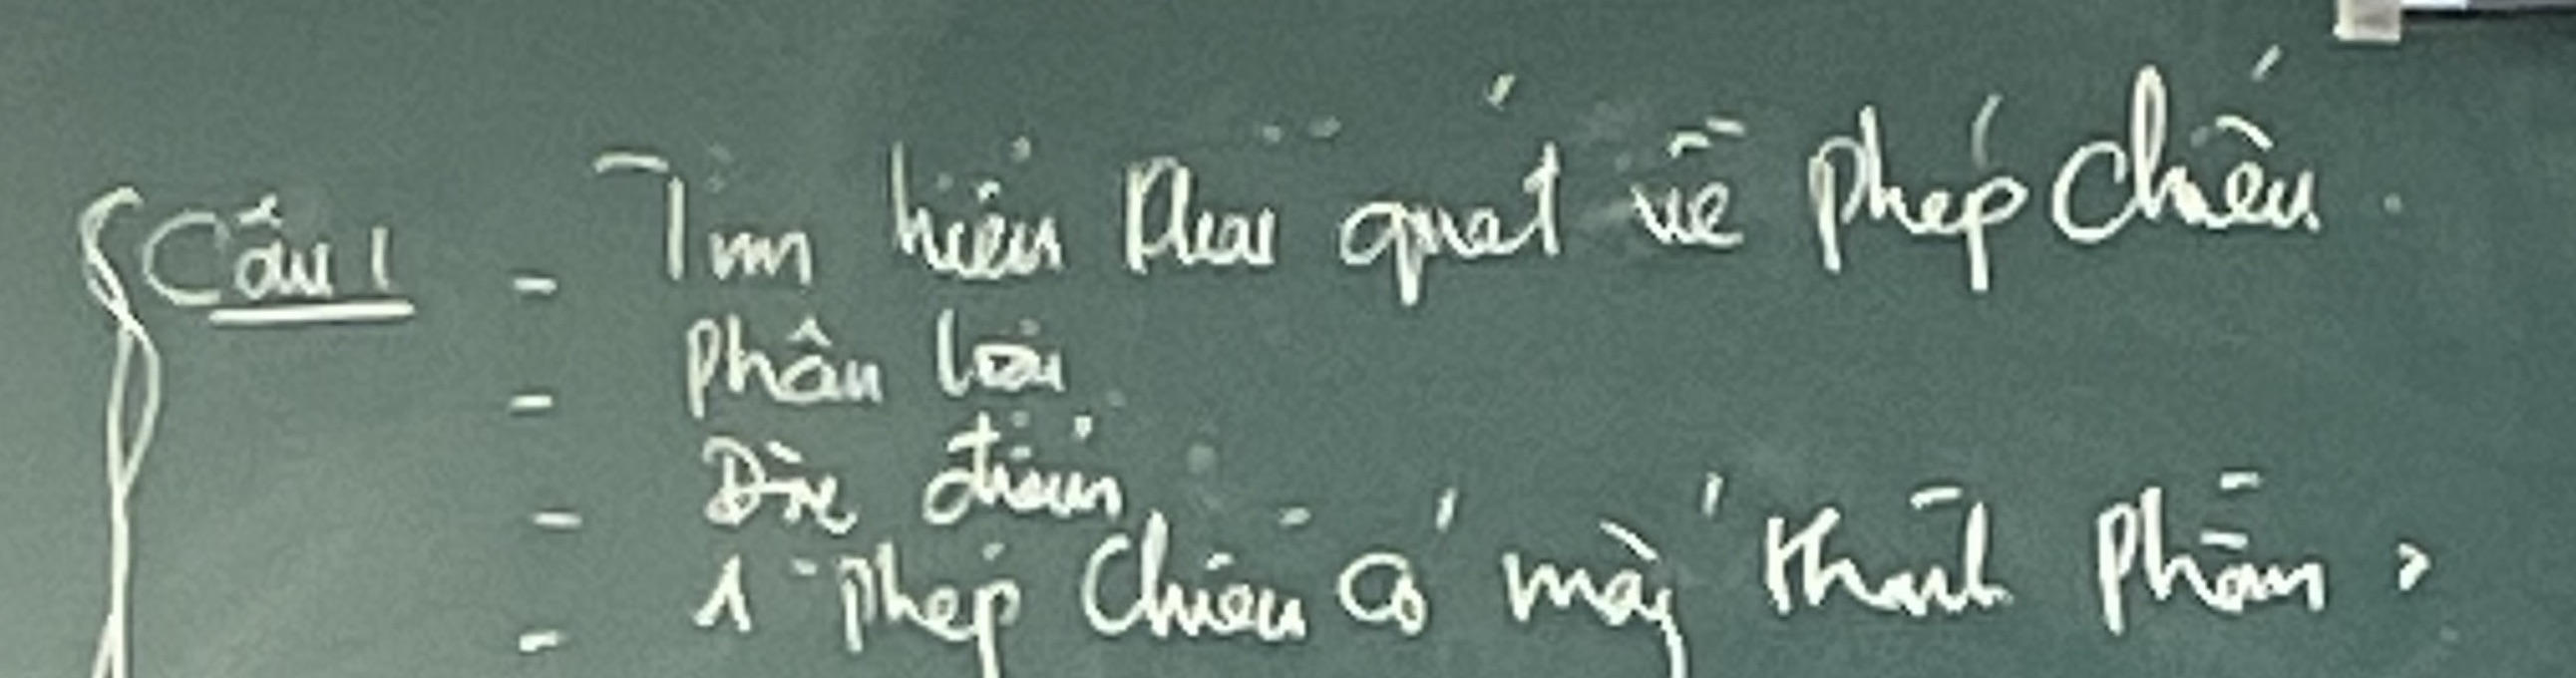 Câu 1 - Tìm hiểu khái quát về phép chiếu.
- Phân loại
- Đặc điểm
- 1 phép chiếu có mấy thành phần?